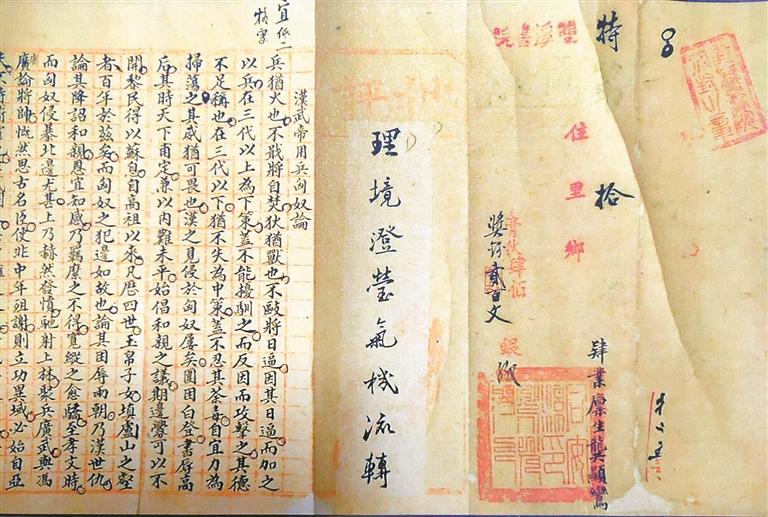 特
拾
肄業廩生龔顯鸞
溪書院
住里鄉
貳百文
理境澄瑩氣機流轉
宜低二
格字
漢武帝用兵匈奴論
兵猶火也不戢將自焚狄猶獸也不敺將日逼因其日逼而加之
以兵在三代以上為下策蓋不能擾馴之而反因而攻擊之其德
不足稱也在三代以下猶不失為中策蓋不忍其荼毒自宜力為
掃蕩之其威猶可畏也漢之見侵於匈奴屢矣圍困白登書辱高
后其時天下甫定兼以內難未平始倡和親之議期邊釁可以不
開黎民得以蘇息自高祖以來凡歷四世玉帛子女填廬山之壑
者百年於茲矣而匈奴之犯邊如故也論其困辱兩朝乃漢世仇
論其降詔和親恩宜知感乃羈縻之不得寬縱之愈驕至孝文時
而匈奴侵暴北邊尤甚上乃赫然發憤馳射上林聚兵廣武與馮
唐論將帥慨然思古名臣使非中年殂謝則立功異域必始自亞